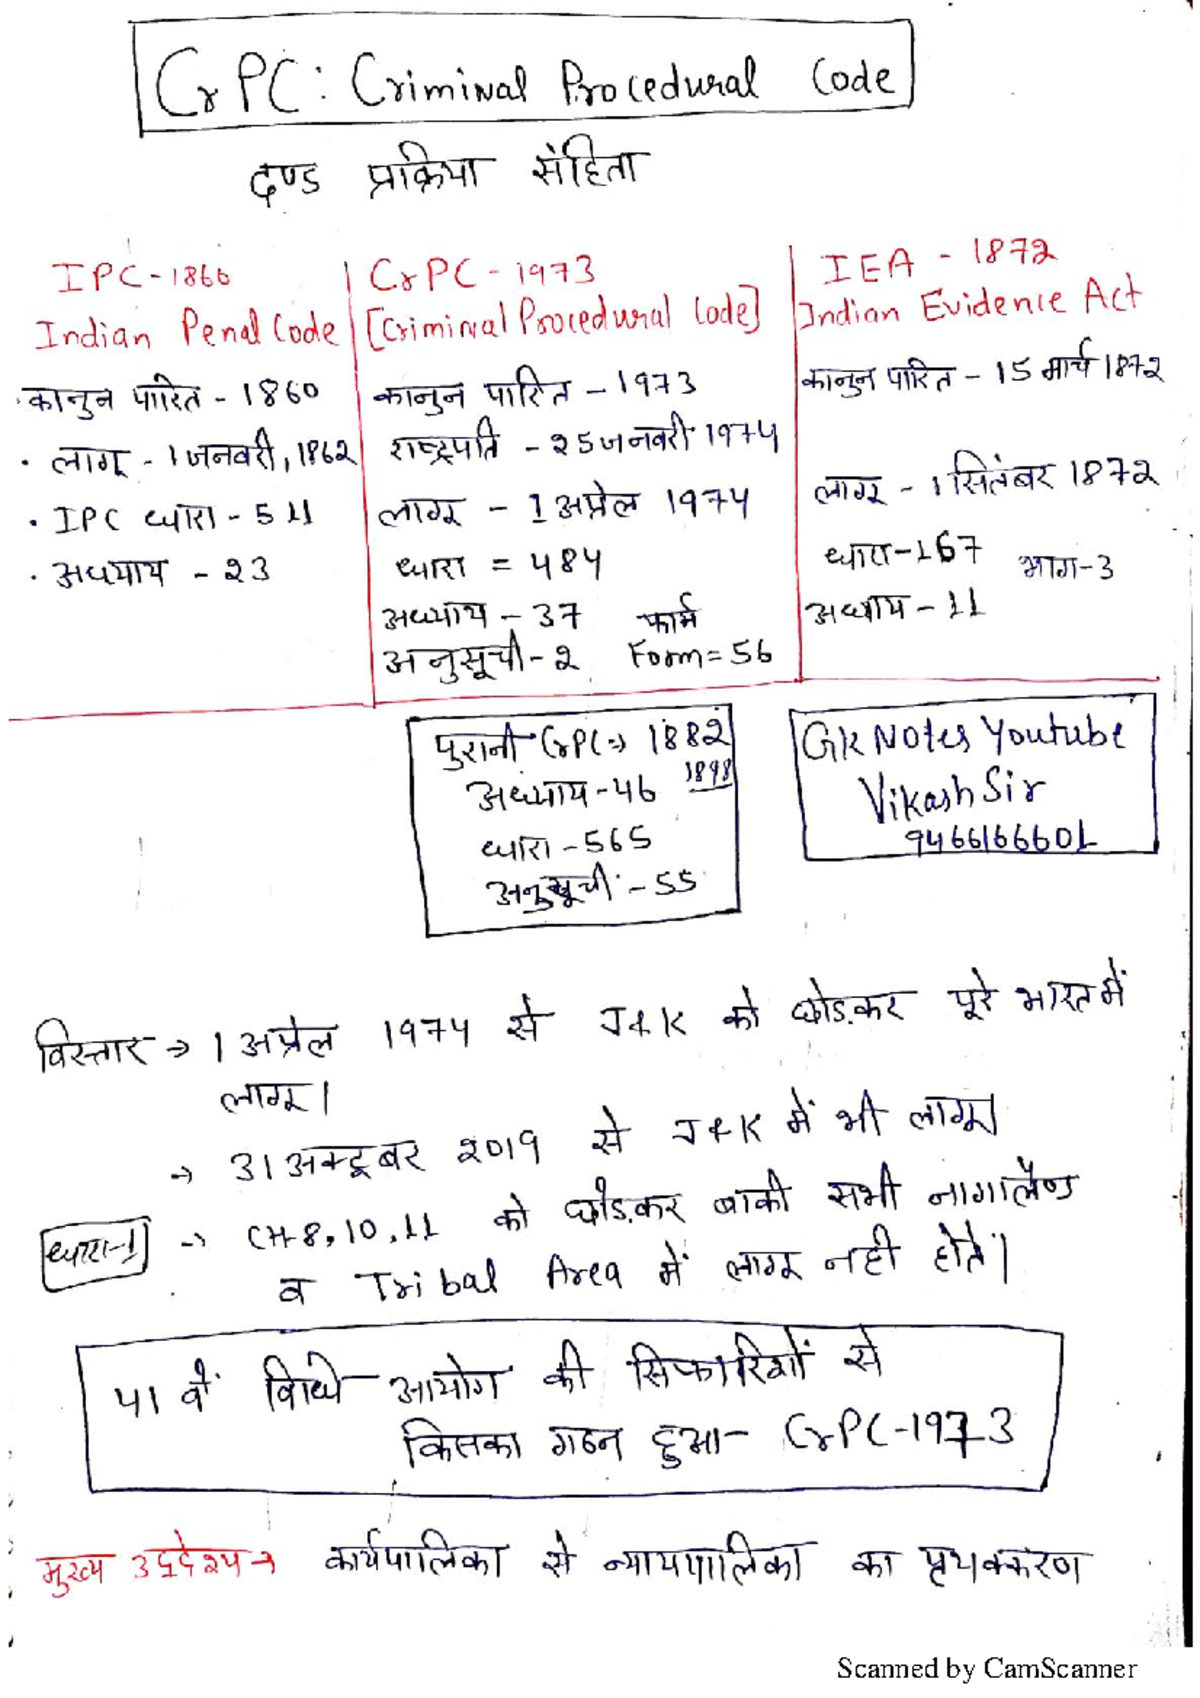 CrPC: Criminal Procedural Code
दण्ड प्रक्रिया संहिता
IPC-1860
Indian Penal Code
कानुन पारित - 1860
· लागू - 1 जनवरी, 1862
· IPC धारा - 511
· अध्याय - 23
CrPC - 1973
[Criminal Procedural Code]
कानुन पारित - 1973
राष्ट्रपति - 25 जनवरी 1974
लागू - 1 अप्रेल 1974
धारा = 484
अध्याय - 37 फार्म
अनुसूची - 2 Form = 56
IEA - 1872
Indian Evidence Act
कानुन पारित - 15 मार्च 1872
लागू - 1 सितंबर 1872
धारा-167 भाग-3
अध्याय - 11
पुरानी CrPC → 1882
1898
अध्याय-46
धारा-565
अनुसूची - 55
GK Notes Youtube
Vikash Sir
9466166601
विस्तार → 1 अप्रेल 1974 से J&K को छोड़कर पूरे भारत में
लागू।
→ 31 अक्टूबर 2019 से J&K में भी लागू।
धारा-1 → CH 8, 10, 11 को छोड़कर बाकी सभी नागालैण्ड
व Tribal Area में लागू नही होते।
41 वें विधि आयोग की सिफारिशों से
किसका गठन हुआ- CrPC-1973
मुख्य उद्देश्य → कार्यपालिका से न्यायपालिका का पृथक्करण
Scanned by CamScanner